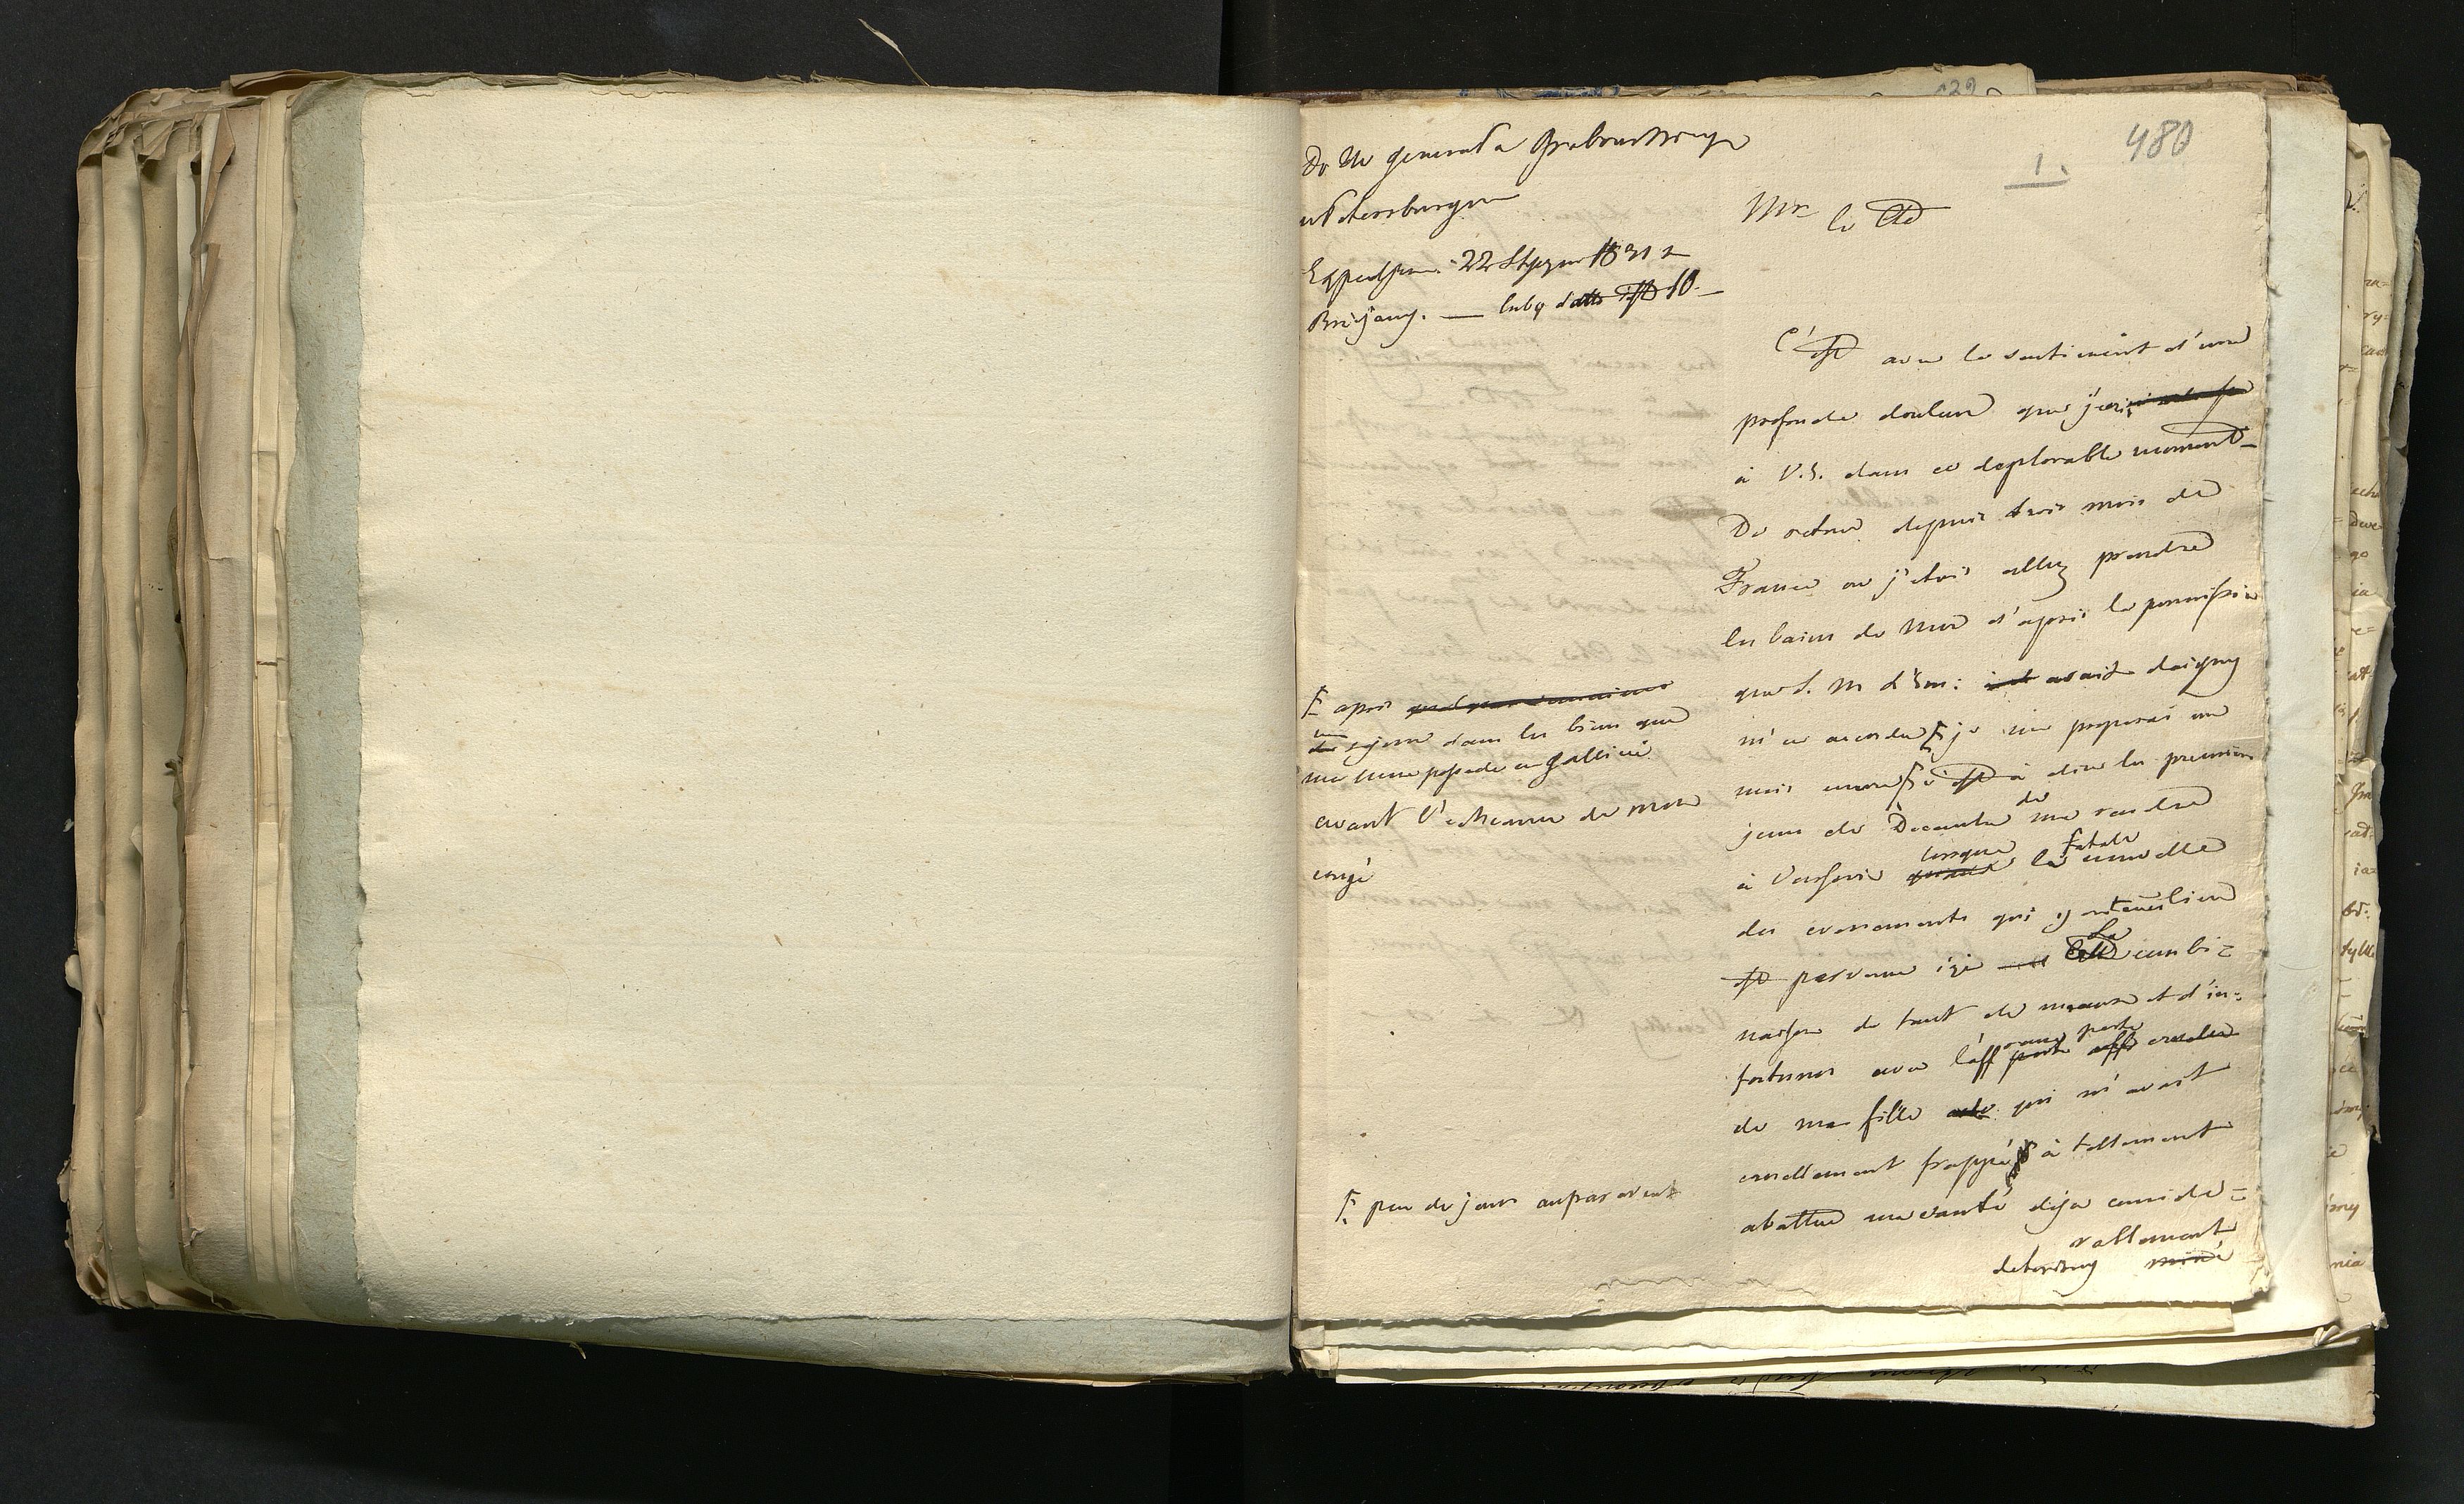 480
1.
Do Uo generała Grabowskiego
w Petersburgu
Expedyow. 22 Stycznia 1831 r.
Brzeżany. — luby datto 10. —
Mr le Cte
C'est avec le sentiment d'une
profonde douleur que j'ecris
à V.E. dans ce deplorable moment —
De retour depuis trois mois de
France ou j'etois allez prendre
les bains de Mer d'apres la permission
que S. M. l'Em: avait daigney
m'en accorder F je me proposai un
mois encore F c'est à dire les premiers
jours de Decembre de me rendre
à Varsovie lorsque la fatale nouvelle
des evenements qui y ont eues lieux
est parvenue ici La combi=
naison de tant de maux et d'in=
fortunes avec l'affreuse perte
de ma fille qui m'avait
cruellement frappé F à tellement
abattue ma santé deja conside=
rablement
deterrorey
F apres
un sejour dans les biens que
ma mere possede en Gallicie
avant l'echeance de mon
congé
F peu de jours auparavent